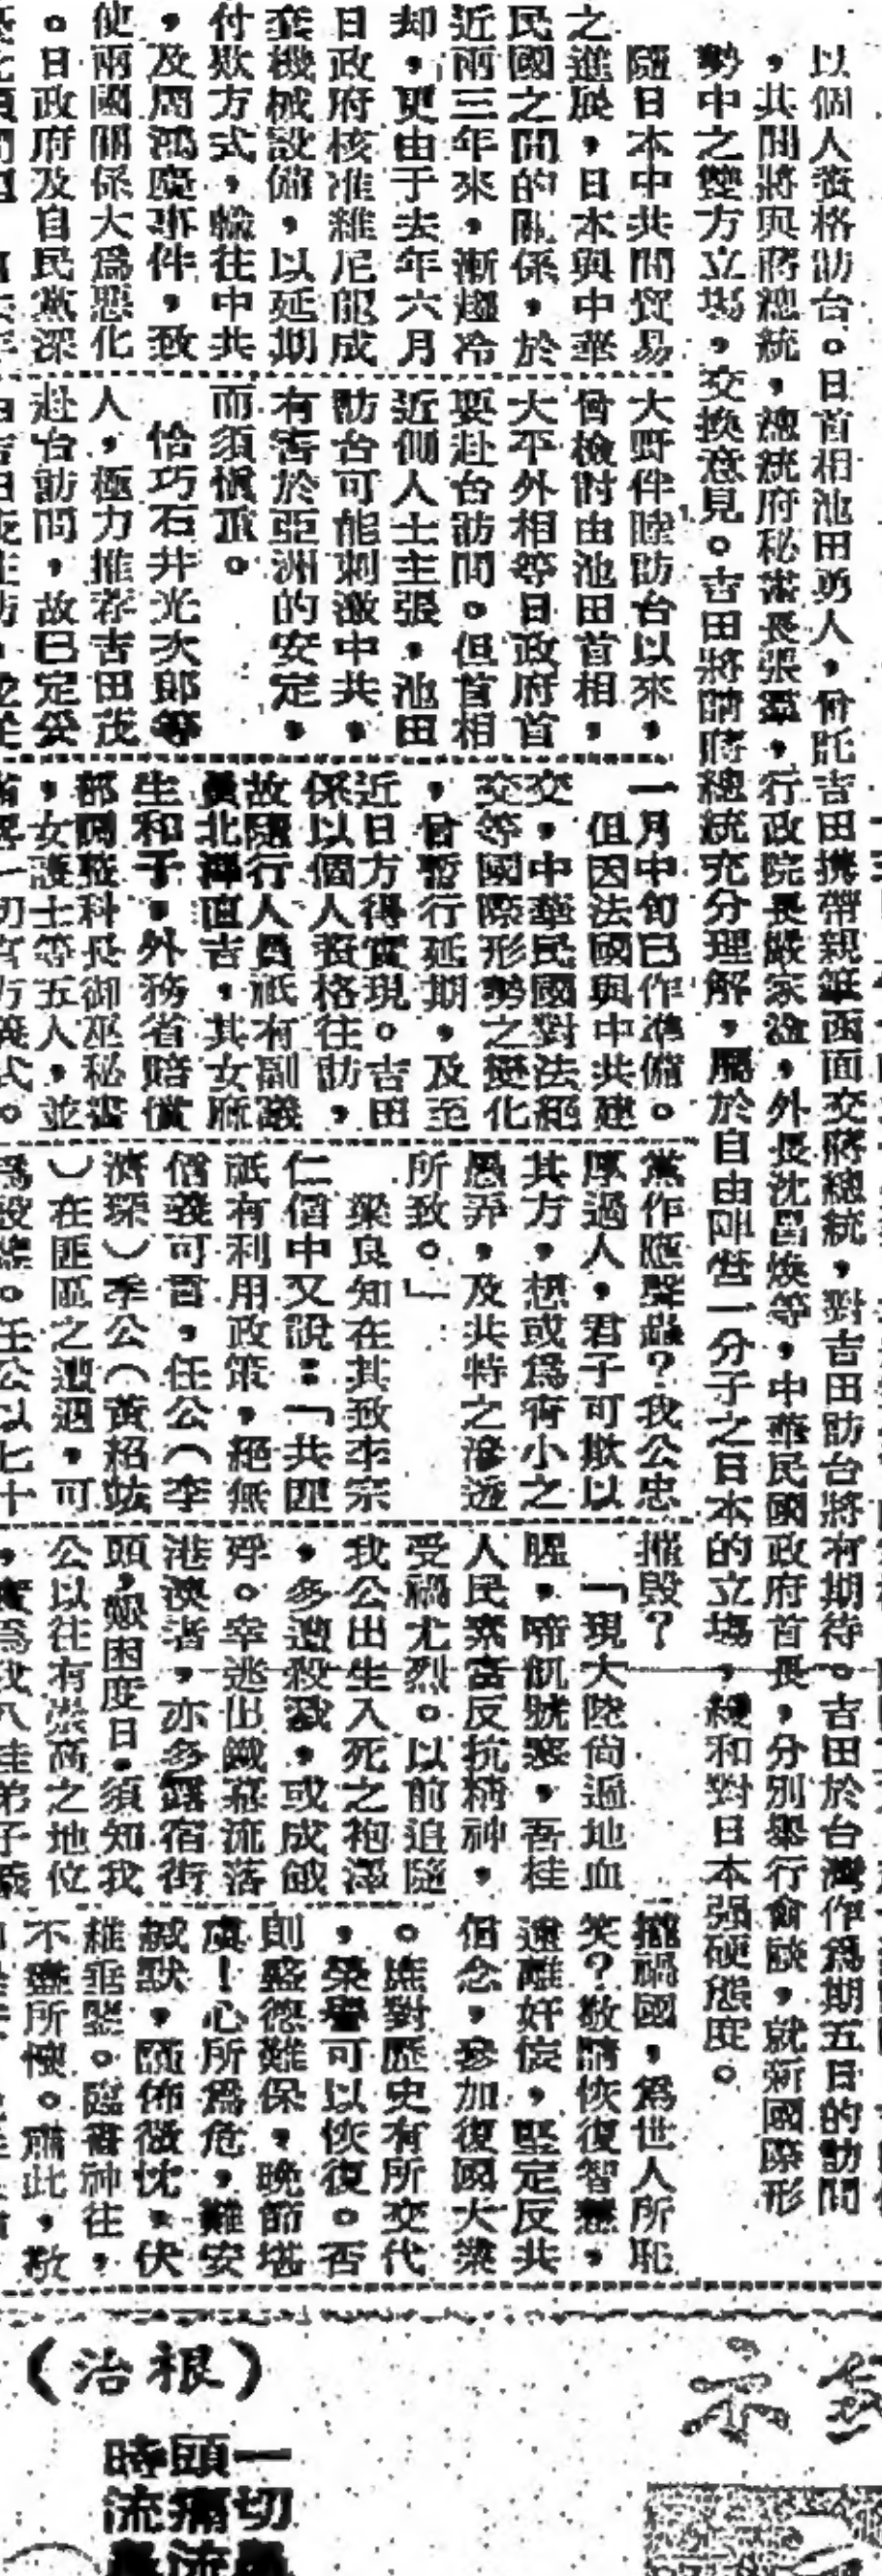 以個人資格訪台。日首相池田勇人，曾託吉田携帶親筆函面交蔣總統，對吉田訪台將有期待。吉田於台灣作爲期五日的訪問
，其間將與蔣總統，總統府秘書長張羣，行政院長嚴家淦，外長沈昌煥等，中華民國政府首長，分別舉行會談，就新國際形
勢中之雙方立塲，交換意見。吉田將請蔣總統充分理解，屬於自由陣營一分子之日本的立塲，緩和對日本强硬態度。
隨日本中共間貿易
之進展，日本與中華
民國之間的關係，於
近兩三年來，漸趨冷
却，更由于去年六月
日政府核准維尼龍成
套機械設備，以延期
付欵方式，輸往中共
，及周鴻慶事件，致
使兩國關係大爲惡化
。日政府及自民黨深
大野伴睦訪台以來，
曾檢討由池田首相，
大平外相等日政府首
要赴台訪問。但首相
近側人士主張，池田
訪台可能刺激中共，
有害於亞洲的安定，
而須愼重。
恰巧石井光次郎等
人，極力推荐吉田茂
赴台訪問，故已定於
一月中旬已作準備。
但因法國與中共建
交，中華民國對法絕
交等國際形勢之變化
，曾暫行延期，及至
近日方得實現。吉田
係以個人資格往訪，
故隨行人員祇有副議
員北澤直吉，其女麻
生和子，外務省賠償
部調整科長御巫秘書
，女護士等五人，並
黨作應聲蟲？我公忠
厚過人，君子可欺以
其方，想或爲宵小之
愚弄，及共特之滲透
所致。」
梁良知在其致李宗
仁信中又說：「共匪
祇有利用政策，絕無
信義可言，任公（李
濟琛）季公（黃紹竑
）在匪區之遭遇，可
爲殷鑑。任公以七十
摧毁？
「現大陸尙遍地血
腥，啼飢號寒，吾桂
人民素富反抗精神，
受禍尤烈。以前追隨
我公出生入死之袍澤
，多遭殺戮，或成餓
殍。幸逃出鐵幕流落
港澳者，亦多露宿街
頭，艱困度日，須知我
公以往有崇高之地位
禍國，爲世人所恥
笑？敬請恢復智慧，
遠離奸宄，堅定反共
信念，參加復國大業
。庶對歷史有所交代
，榮譽可以恢復。否
則盛德難保，晚節堪
虞！心所爲危，難安
緘默，頤佈微忱，伏
維垂鑒。臨書神往，
不盡所懷。肅此，敬
（治根）
一切鼻
頭痛流
時流鼻